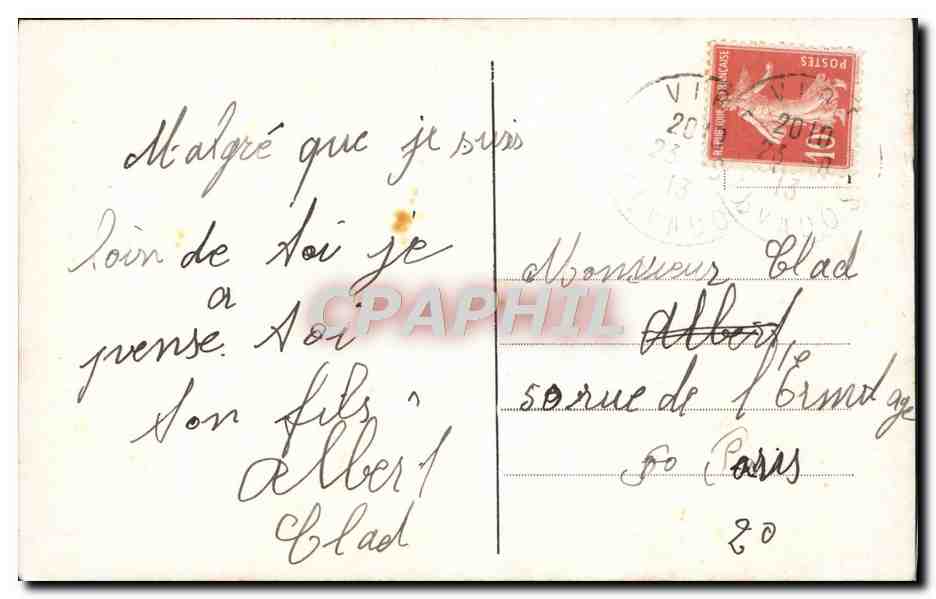 Malgré que je suis
loin de toi je
a
pense toi
ton fils
Albert
Clad
CPAPHIL
REPUBLIQUE FRANÇAISE
POSTES
10
2010
23
13
Monsieur Clad
Albert
50 rue de l'Ermitage
Paris
20